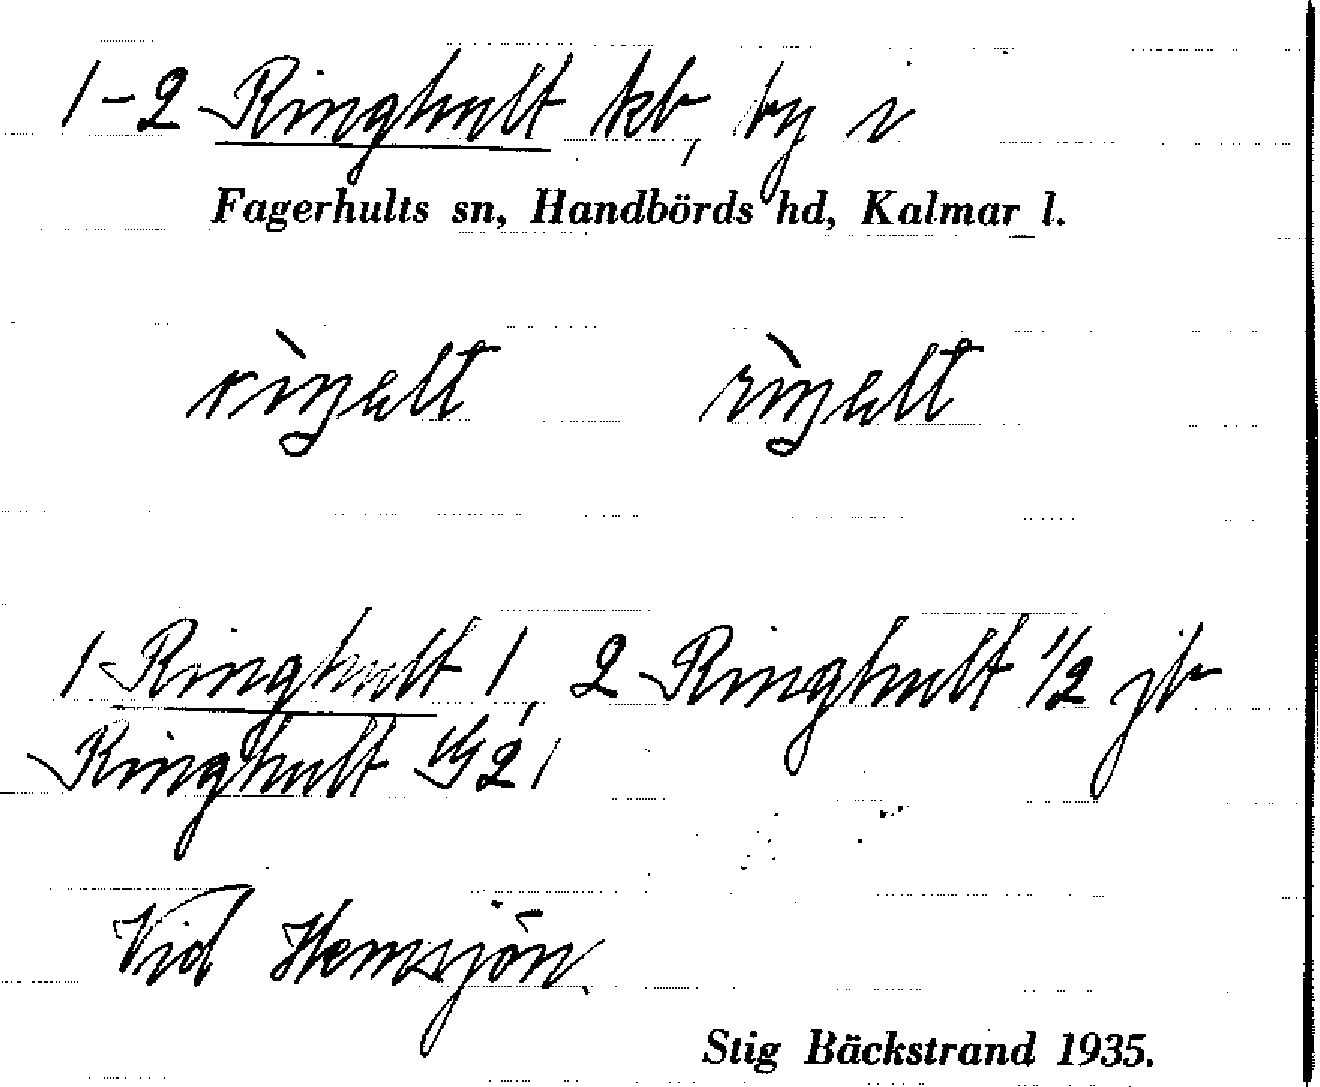 1-2 Ringhult kb, by i
Fagerhults sn, Handbörds hd, Kalmar l.
1 Ringhult 1, 2 Ringhult 1/2 jb
Ringhult
Vid Hemsjön.
Stig Bäckstrand 1935.